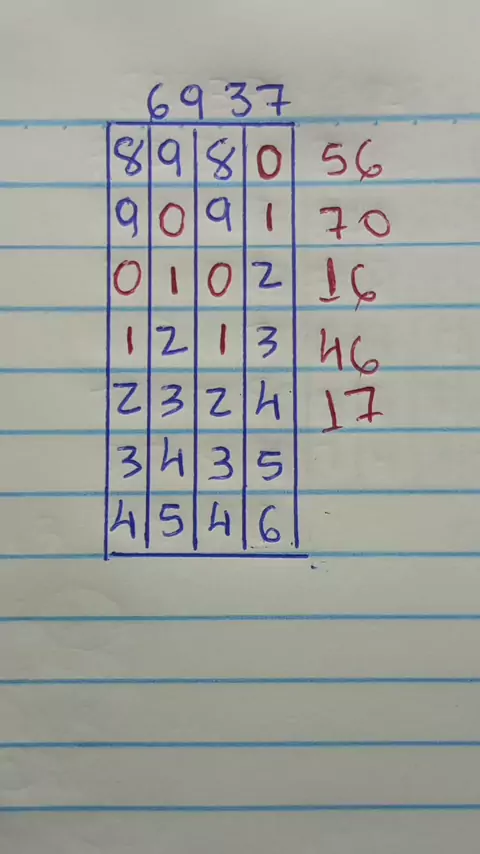 6937
8 9 8 0 56
9 0 9 1 70
0 1 0 2 16
1 2 1 3 46
2 3 2 4 17
3 4 3 5
4 5 4 6